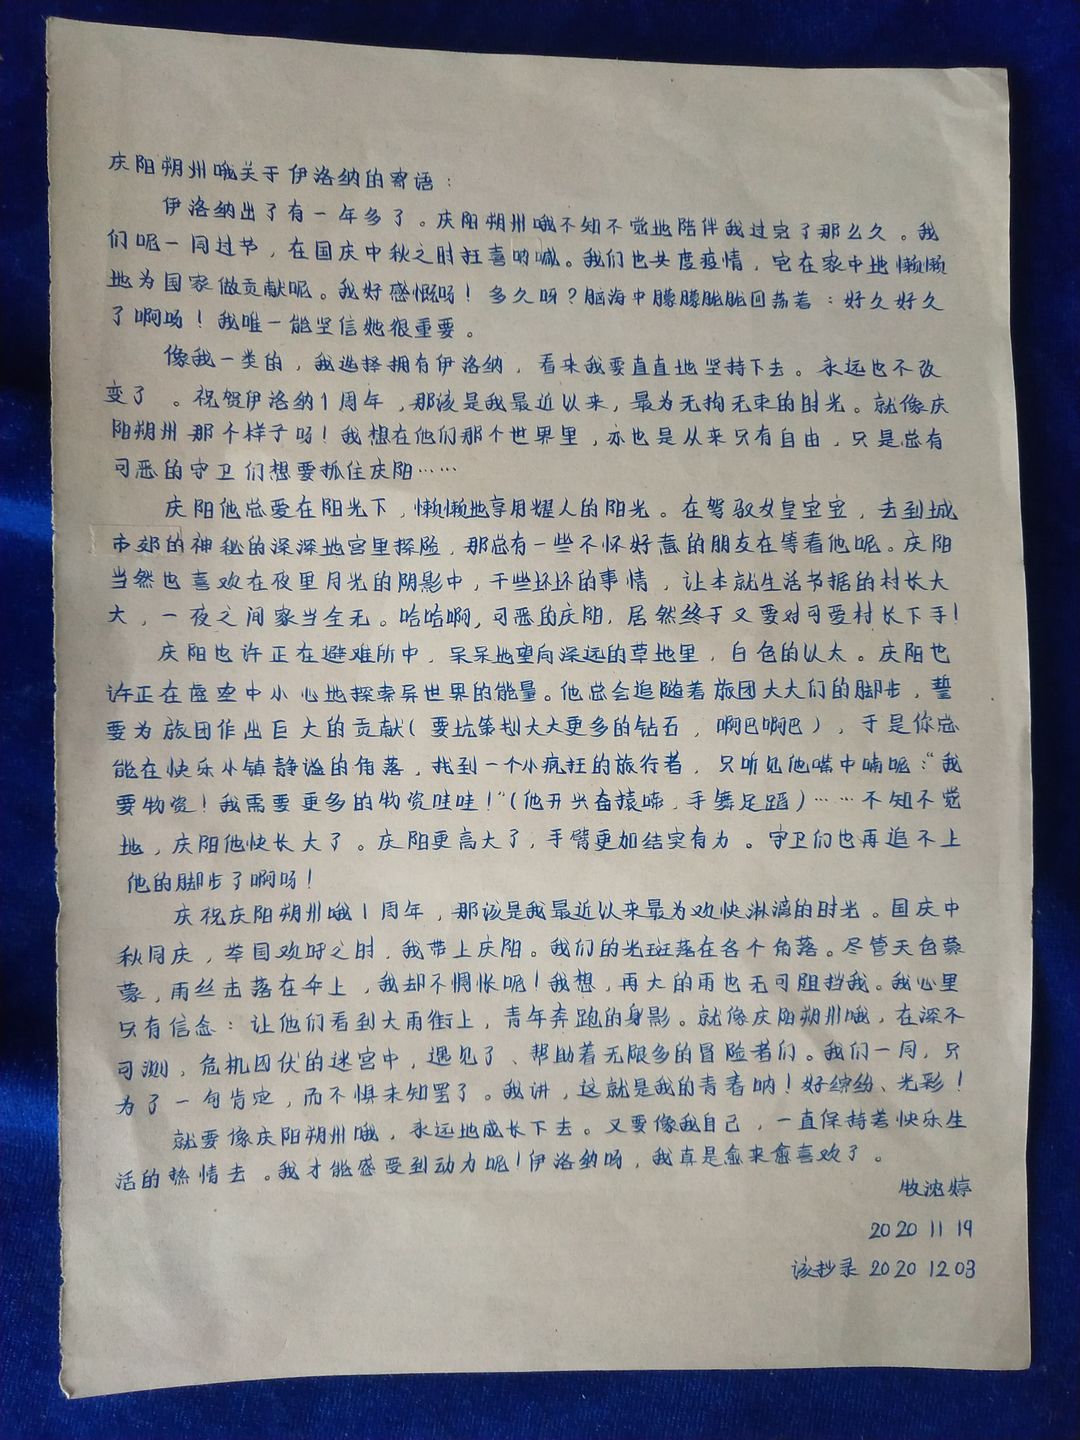 庆阳朔州哦关于伊洛纳的寄语：
伊洛纳出了有一年多了。庆阳朔州哦不知不觉地陪伴我过完了那么久。我
们呢一同过节，在国庆中秋之时狂喜呐喊。我们也共度疫情，宅在家中地懒懒
地为国家做贡献呢。我好感慨呀！多久呀？脑海中朦朦胧胧回荡着：好久好久
了啊呀！我唯一能坚信她很重要。
像我一类的，我选择拥有伊洛纳，看来我要直直地坚持下去。永远也不改
变了。祝贺伊洛纳1周年，那该是我最近以来，最为无拘无束的时光。就像庆
阳朔州那个样子呀！我想在他们那个世界里，亦也是从来只有自由，只是总有
可恶的守卫们想要抓住庆阳……
庆阳他总爱在阳光下，懒懒地享用耀人的阳光。在驾驭女皇宝宝，去到城
市郊的神秘的深深地宫里探险，那总有一些不怀好意的朋友在等着他呢。庆阳
当然也喜欢在夜里月光的阴影中，干些坏坏的事情，让本就生活节据的村长大
大，一夜之间家当全无。哈哈啊，可恶的庆阳，居然终于又要对可爱村长下手！
庆阳也许正在避难所中，呆呆地望向深远的草地里，白色的以太。庆阳也
许正在虚空中小心地探索异世界的能量。他总会追随着旅团大大们的脚步，誓
要为旅团作出巨大的贡献（要坑策划大大更多的钻石，啊巴啊巴），于是你总
能在快乐小镇静谧的角落，找到一个小疯狂的旅行者，只听见他嘴中喃呢：“我
要物资！我需要更多的物资哇哇！”（他开兴奋猿啼，手舞足蹈）……不知不觉
地，庆阳他快长大了。庆阳更高大了，手臂更加结实有力。守卫们也再追不上
他的脚步了啊呀！
庆祝庆阳朔州哦1周年，那该是我最近以来最为欢快淋漓的时光。国庆中
秋同庆，举国欢呼之时，我带上庆阳。我们的光斑落在各个角落。尽管天色蒙
蒙，雨丝击落在伞上，我却不惆怅呢！我想，再大的雨也无可阻挡我。我心里
只有信念：让他们看到大雨街上，青年奔跑的身影。就像庆阳朔州哦，在深不
可测，危机四伏的迷宫中，遇见了、帮助着无限多的冒险者们。我们一同，只
为了一句肯定，而不惧未知罢了。我讲，这就是我的青春呐！好缤纷、光彩！
就要像庆阳朔州哦，永远地成长下去。又要像我自己，一直保持着快乐生
活的热情去。我才能感受到动力呢！伊洛纳呀，我真是愈来愈喜欢了。
牧婷
2020 11 19
该抄录 2020 12 03